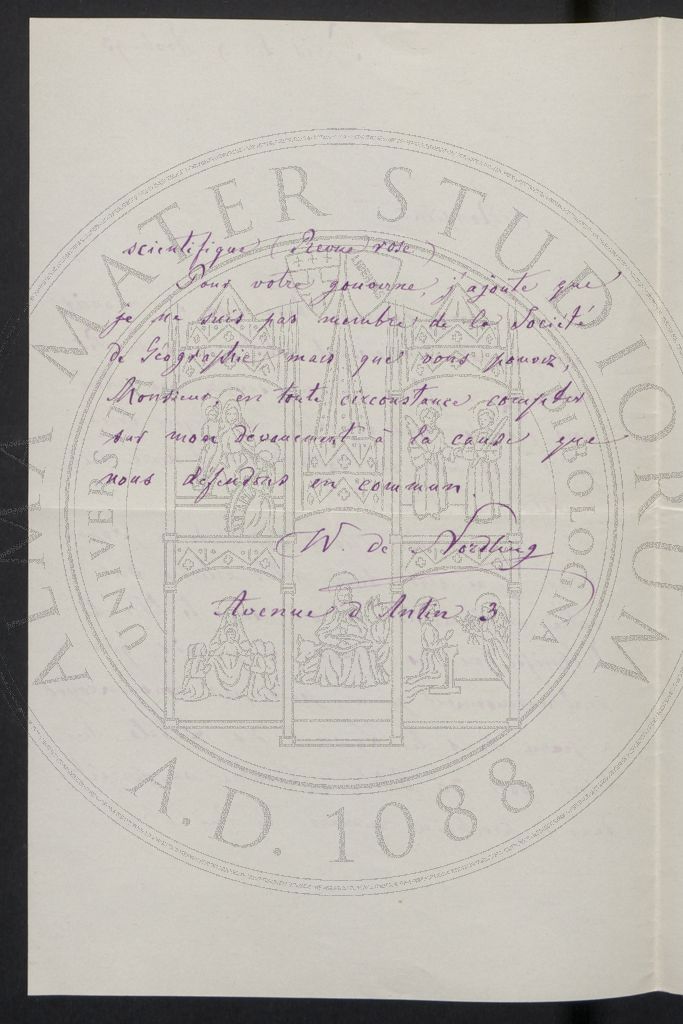 scientifique (Revue rose)
Pour votre gouverne, j'ajoute que
je ne suis pas membre de la Société
de Géographie mais que vous pouvez,
Monsieur, en toute circonstance compter
sur mon dévouement à la cause que
nous défendons en commun.
W. de Nördling
Avenue d'Antin 3
ALMA MATER STUDIORUM
UNIVERSITÀ DI BOLOGNA
A.D. 1088